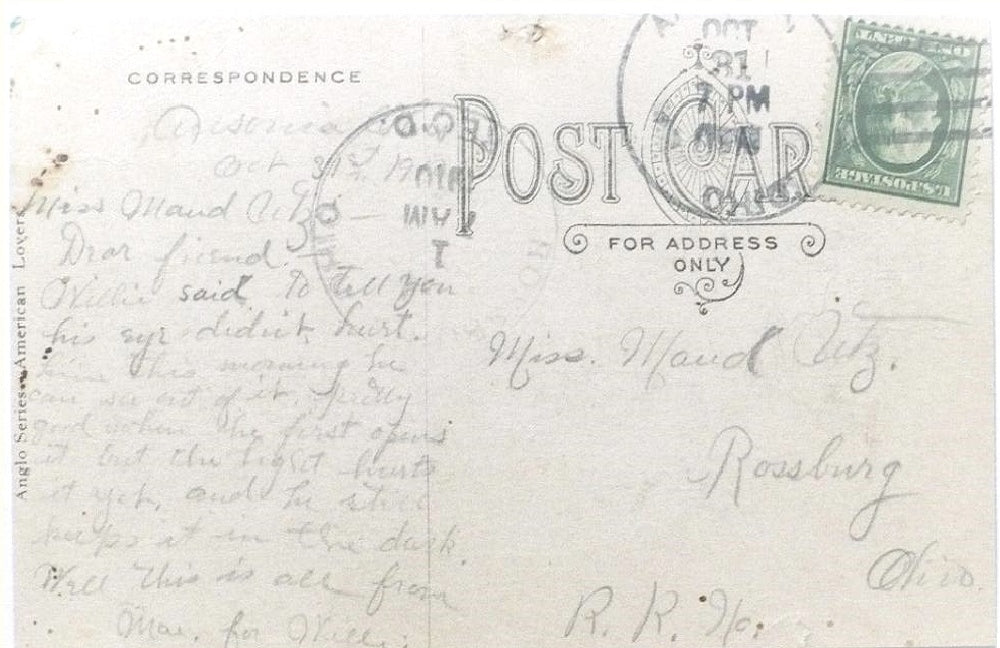 CORRESPONDENCE
Ansonia Ohio
Oct 31st, 19
Miss Maud Utz —
Dear friend. —
Willie said to tell you
his eye didn't hurt.
him this morning he
can see out of it. pretty
good when he first opens
it but the light hurts
it yet, and he still
keeps it in the dark.
Well this is all from
Mae. for Willie.
Anglo Series. American Lovers
POST CARD
FOR ADDRESS
ONLY
OCT
31
7 PM
OHIO
1910
U.S. POSTAGE
Miss. Maud Utz.
Rossburg
Ohio.
R. R. No.